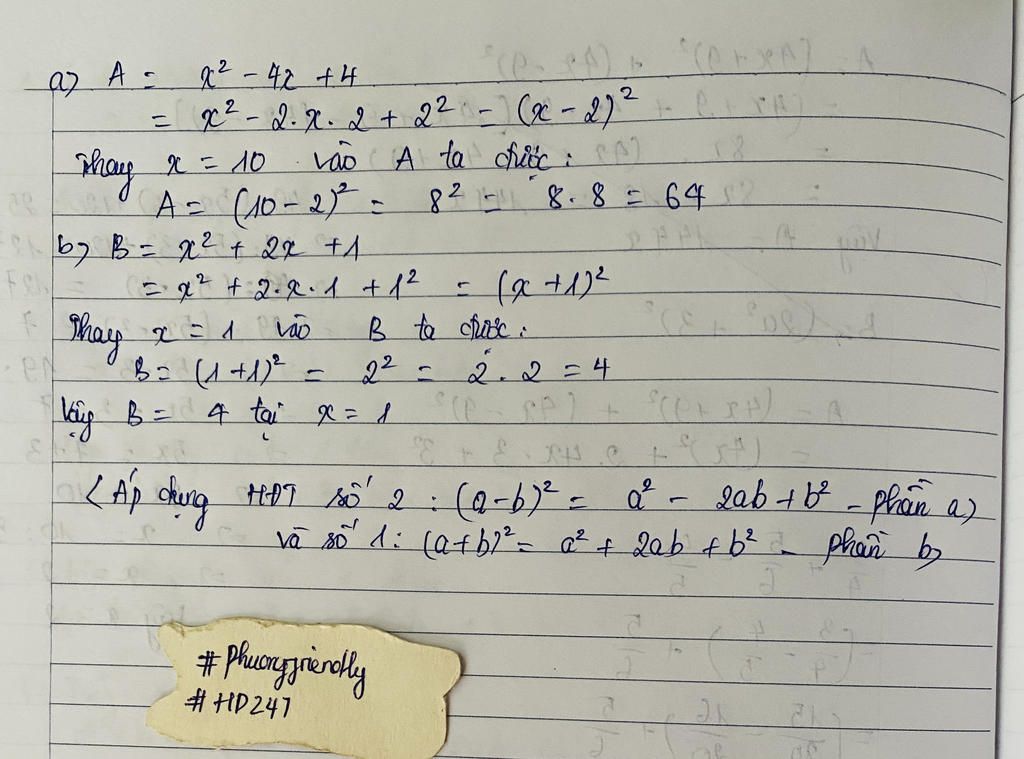 a) A = x² - 4x + 4
= x² - 2.x.2 + 2² = (x - 2)²
Thay x = 10 vào A ta được:
A = (10 - 2)² = 8² = 8.8 = 64
b) B = x² + 2x + 1
= x² + 2.x.1 + 1² = (x + 1)²
Thay x = 1 vào B ta được:
B = (1 + 1)² = 2² = 2.2 = 4
Vậy B = 4 tại x = 1
(Áp dụng HĐT số 2 : (a-b)² = a² - 2ab + b² - phần a)
và số 1: (a+b)² = a² + 2ab + b² - phần b)
#phuongfriendly
#HD247